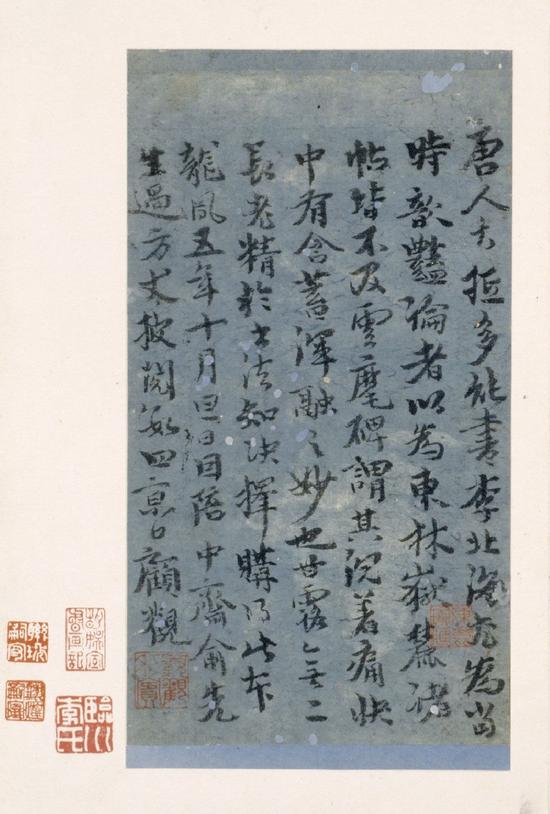 唐人大抵多能書李北海尤為當
時歆豔論者以為東林嶽麓諸
帖皆不及雲麾碑謂其沉著痛快
中有含蓄渾融之妙也甘露無二
長老精於書法知決擇購得此本
龍鳳五年十月四日因陪中齋俞先
生過方丈披閱數四京口顧觀
臨川李氏